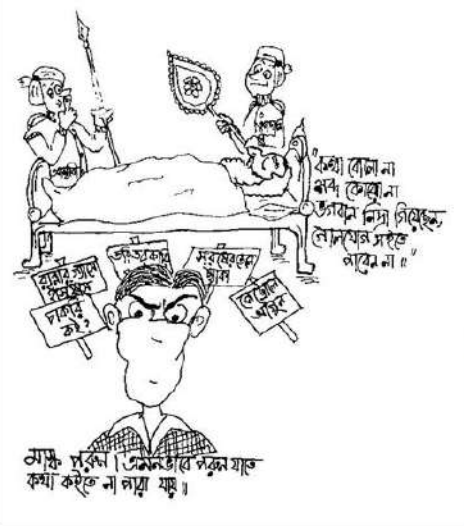 "কথা বোলো না
শব্দ কোরো না
ভগবান নিদ্রা গিয়েছেন,
গোলযোগ সইতে
পারেন না॥"
রান্নার গ্যাসে
সরষের তেল
চাকরি
কই?
পেট্রোল
আগুন
মাস্ক পরুন। এমনভাবে পরুন যাতে
কথা কইতে না পারা যায়॥